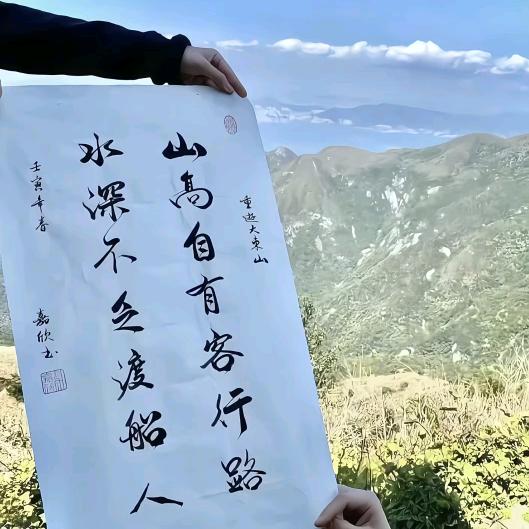 重遊大東山
山高自有客行路
水深不乏渡船人
壬寅年春
嘉欣书